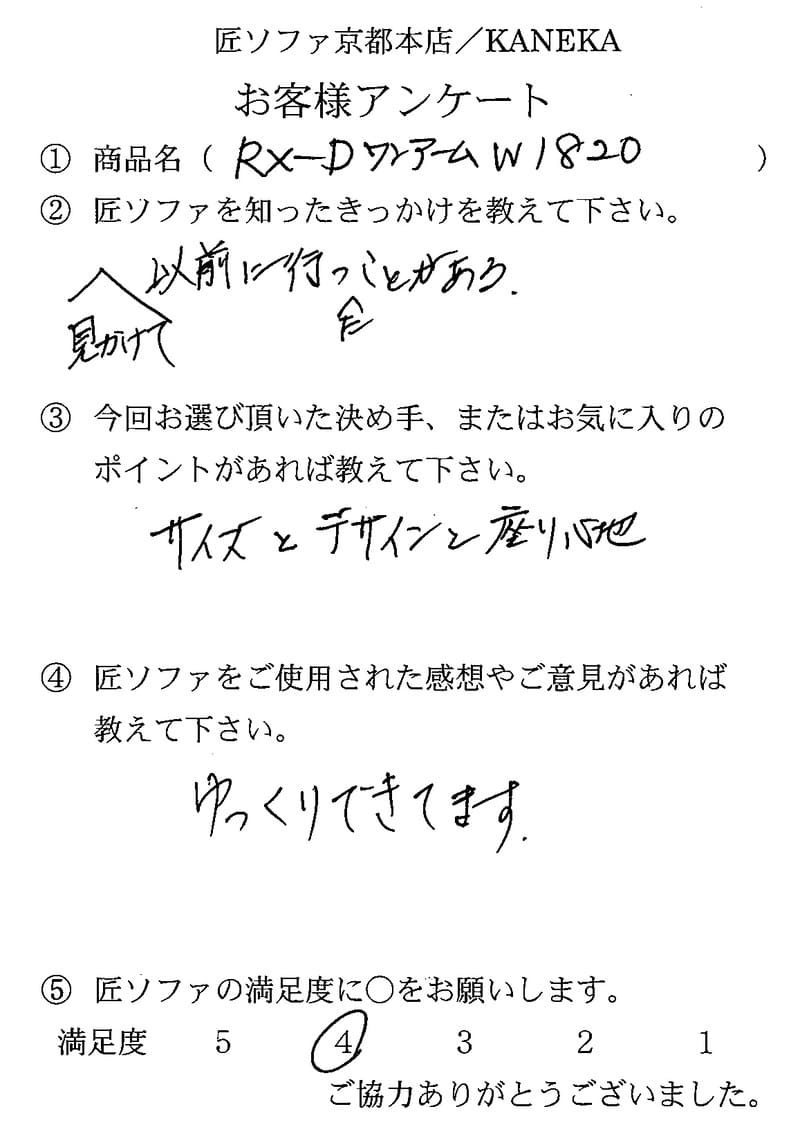 匠ソファ京都本店／KANEKA
お客様アンケート
① 商品名（ RX-DワンアームW1820 ）
② 匠ソファを知ったきっかけを教えて下さい。
見かけて以前に行ったことがある.
③ 今回お選び頂いた決め手、またはお気に入りの
ポイントがあれば教えて下さい。
サイズとデザインと座り心地
④ 匠ソファをご使用された感想やご意見があれば
教えて下さい。
ゆっくりできてます.
⑤ 匠ソファの満足度に○をお願いします。
満足度 5 4 3 2 1
ご協力ありがとうございました。